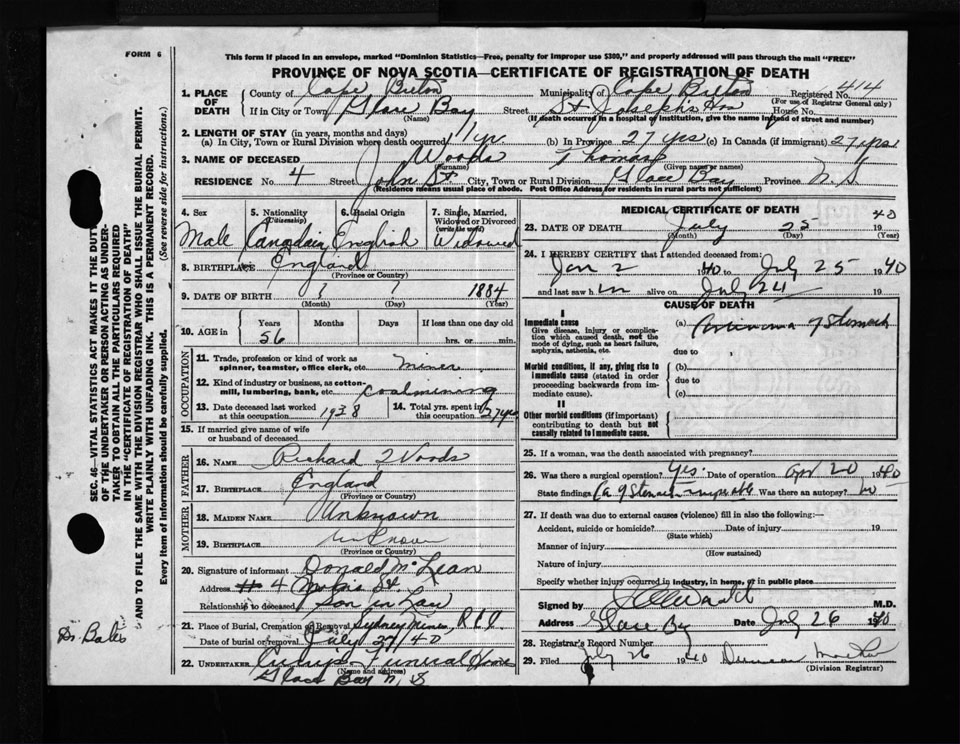 FORM 6
This form if placed in an envelope, marked "Dominion Statistics—Free, penalty for improper use $300," and properly addressed will pass through the mail "FREE"
PROVINCE OF NOVA SCOTIA—CERTIFICATE OF REGISTRATION OF DEATH
1. PLACE OF DEATH County of Cape Breton Municipality of Cape Breton Registered No. 414
(For use of Registrar General only)
If in City or Town Glace Bay Street St Joseph's Hos House No.
(Name) (If death occurred in a hospital or institution, give the name instead of street and number)
2. LENGTH OF STAY (in years, months and days)
(a) In City, Town or Rural Division where death occurred 1 yr. (b) In Province 27 yrs (c) In Canada (if immigrant) 27 yrs
3. NAME OF DECEASED Woods Thomas
(Surname) (Given name or names)
RESIDENCE No. 4 Street John St. City, Town or Rural Division Glace Bay Province N.S.
(Residence means usual place of abode. Post Office Address for residents in rural parts not sufficient)
4. Sex Male
5. Nationality (Citizenship) Canadian
6. Racial Origin English
7. Single, Married, Widowed or Divorced (write the word) Widowed
8. BIRTHPLACE England
(Province or Country)
9. DATE OF BIRTH 1884
(Month) (Day) (Year)
10. AGE in Years 56 Months Days If less than one day old hrs. or min.
OCCUPATION
11. Trade, profession or kind of work as spinner, teamster, office clerk, etc. Miner
12. Kind of industry or business, as cotton-mill, lumbering, bank, etc. Coal mining
13. Date deceased last worked at this occupation 1938
14. Total yrs. spent in this occupation 27 yrs
15. If married give name of wife or husband of deceased
FATHER
16. NAME Richard Woods
17. BIRTHPLACE England
(Province or Country)
MOTHER
18. MAIDEN NAME Unknown
19. BIRTHPLACE Unknown
(Province or Country)
20. Signature of informant Donald McLean
Address # 4 St.
Relationship to deceased Son in Law
21. Place of Burial, Cremation or Removal Sydney Mines,
Date of burial or removal July 27/40
22. UNDERTAKER Funeral Home
(Name and address)
Glace Bay N S
MEDICAL CERTIFICATE OF DEATH
23. DATE OF DEATH July 25 40
(Month) (Day) (Year)
24. I HEREBY CERTIFY that I attended deceased from:
Jan 2 1940 to July 25 1940
and last saw h im alive on July 24 19
CAUSE OF DEATH
I
Immediate cause
Give disease, injury or complication which caused death, not the mode of dying, such as heart failure, asphyxia, asthenia, etc.
(a) Carcinoma of Stomach
due to
Morbid conditions, if any, giving rise to immediate cause (stated in order proceeding backwards from immediate cause).
(b)
due to
(c)
II
Other morbid conditions (if important) contributing to death but not causally related to immediate cause.
25. If a woman, was the death associated with pregnancy?
26. Was there a surgical operation? Yes. Date of operation Apr 20 1940
State findings Ca of Stomach inoperable Was there an autopsy? no
27. If death was due to external causes (violence) fill in also the following:—
Accident, suicide or homicide? Date of injury 19
(State which)
Manner of injury
(How sustained)
Nature of injury
Specify whether injury occurred in industry, in home, or in public place
Signed by M.D.
Address Glace Bay Date July 26 1940
28. Registrar's Record Number
29. Filed July 26 1940 Duncan
(Division Registrar)
SEC. 46—VITAL STATISTICS ACT MAKES IT THE DUTY
OF THE UNDERTAKER OR PERSON ACTING AS UNDER-
TAKER TO OBTAIN ALL THE PARTICULARS REQUIRED
IN THE "CERTIFICATE OF REGISTRATION OF DEATH"
AND TO FILE THE SAME WITH THE DIVISION REGISTRAR WHO SHALL ISSUE THE BURIAL PERMIT.
WRITE PLAINLY WITH UNFADING INK. THIS IS A PERMANENT RECORD.
Every item of information should be carefully supplied. (See reverse side for instructions.)
Dr. Bales